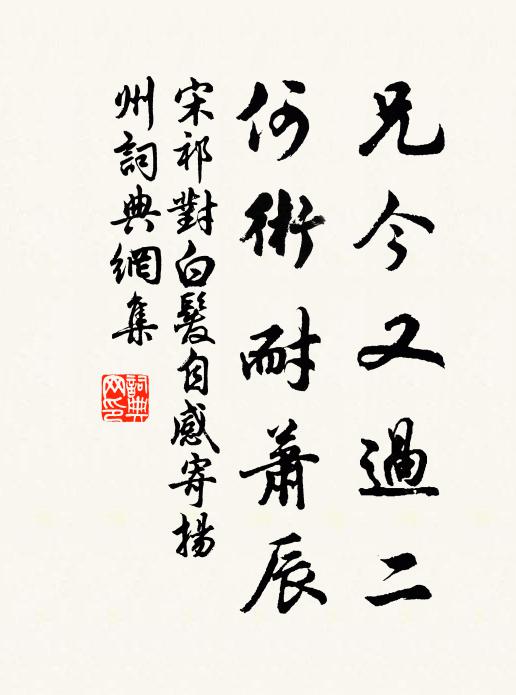 兄今又過二
何術耐蕭辰
宋祁對白髮自感寄揚
州詞典網集
詞典
网印